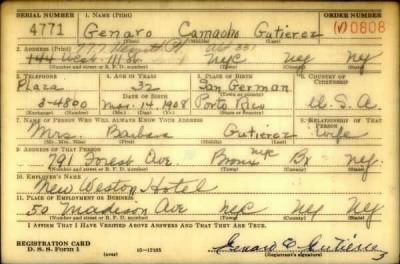 SERIAL NUMBER 1. NAME (Print) ORDER NUMBER
4771 Genaro Camacho Gutierez 10808
(First) (Middle) (Last)
2. ADDRESS (Print)
144 West 111 St. NYC NY NY
(Number and street or R. F. D. number) (Town) (County) (State)
3. TELEPHONE 4. AGE IN YEARS 5. PLACE OF BIRTH 6. COUNTRY OF CITIZENSHIP
Plaza 32 San German
DATE OF BIRTH
3-4800 Mar. 14, 1908 Porto Rico U.S.A
7. NAME OF PERSON WHO WILL ALWAYS KNOW YOUR ADDRESS 8. RELATIONSHIP OF THAT PERSON
Mrs. Barbara Gutierez Wife
9. ADDRESS OF THAT PERSON
791 Forest Ave. Bronx NYC Bx NY.
(Number and street or R. F. D. number) (Town) (County) (State)
10. EMPLOYER'S NAME
New Weston Hotel
11. PLACE OF EMPLOYMENT OR BUSINESS
50 Madison Ave NYC NY NY
(Number and street or R. F. D. number) (Town) (County) (State)
I AFFIRM THAT I HAVE VERIFIED ABOVE ANSWERS AND THAT THEY ARE TRUE.
REGISTRATION CARD
D. S. S. Form 1 (over) Genaro C. Gutierez
(Registrant's signature)